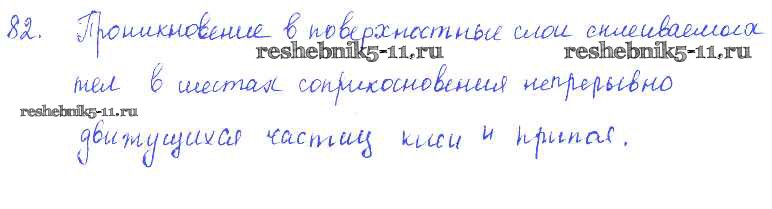 82. Проникновение в поверхностные слои склеиваемых
reshebnik5-11.ru reshebnik5-11.ru
тел в местах соприкосновения непрерывно
reshebnik5-11.ru
движущихся частиц клея и припоя.